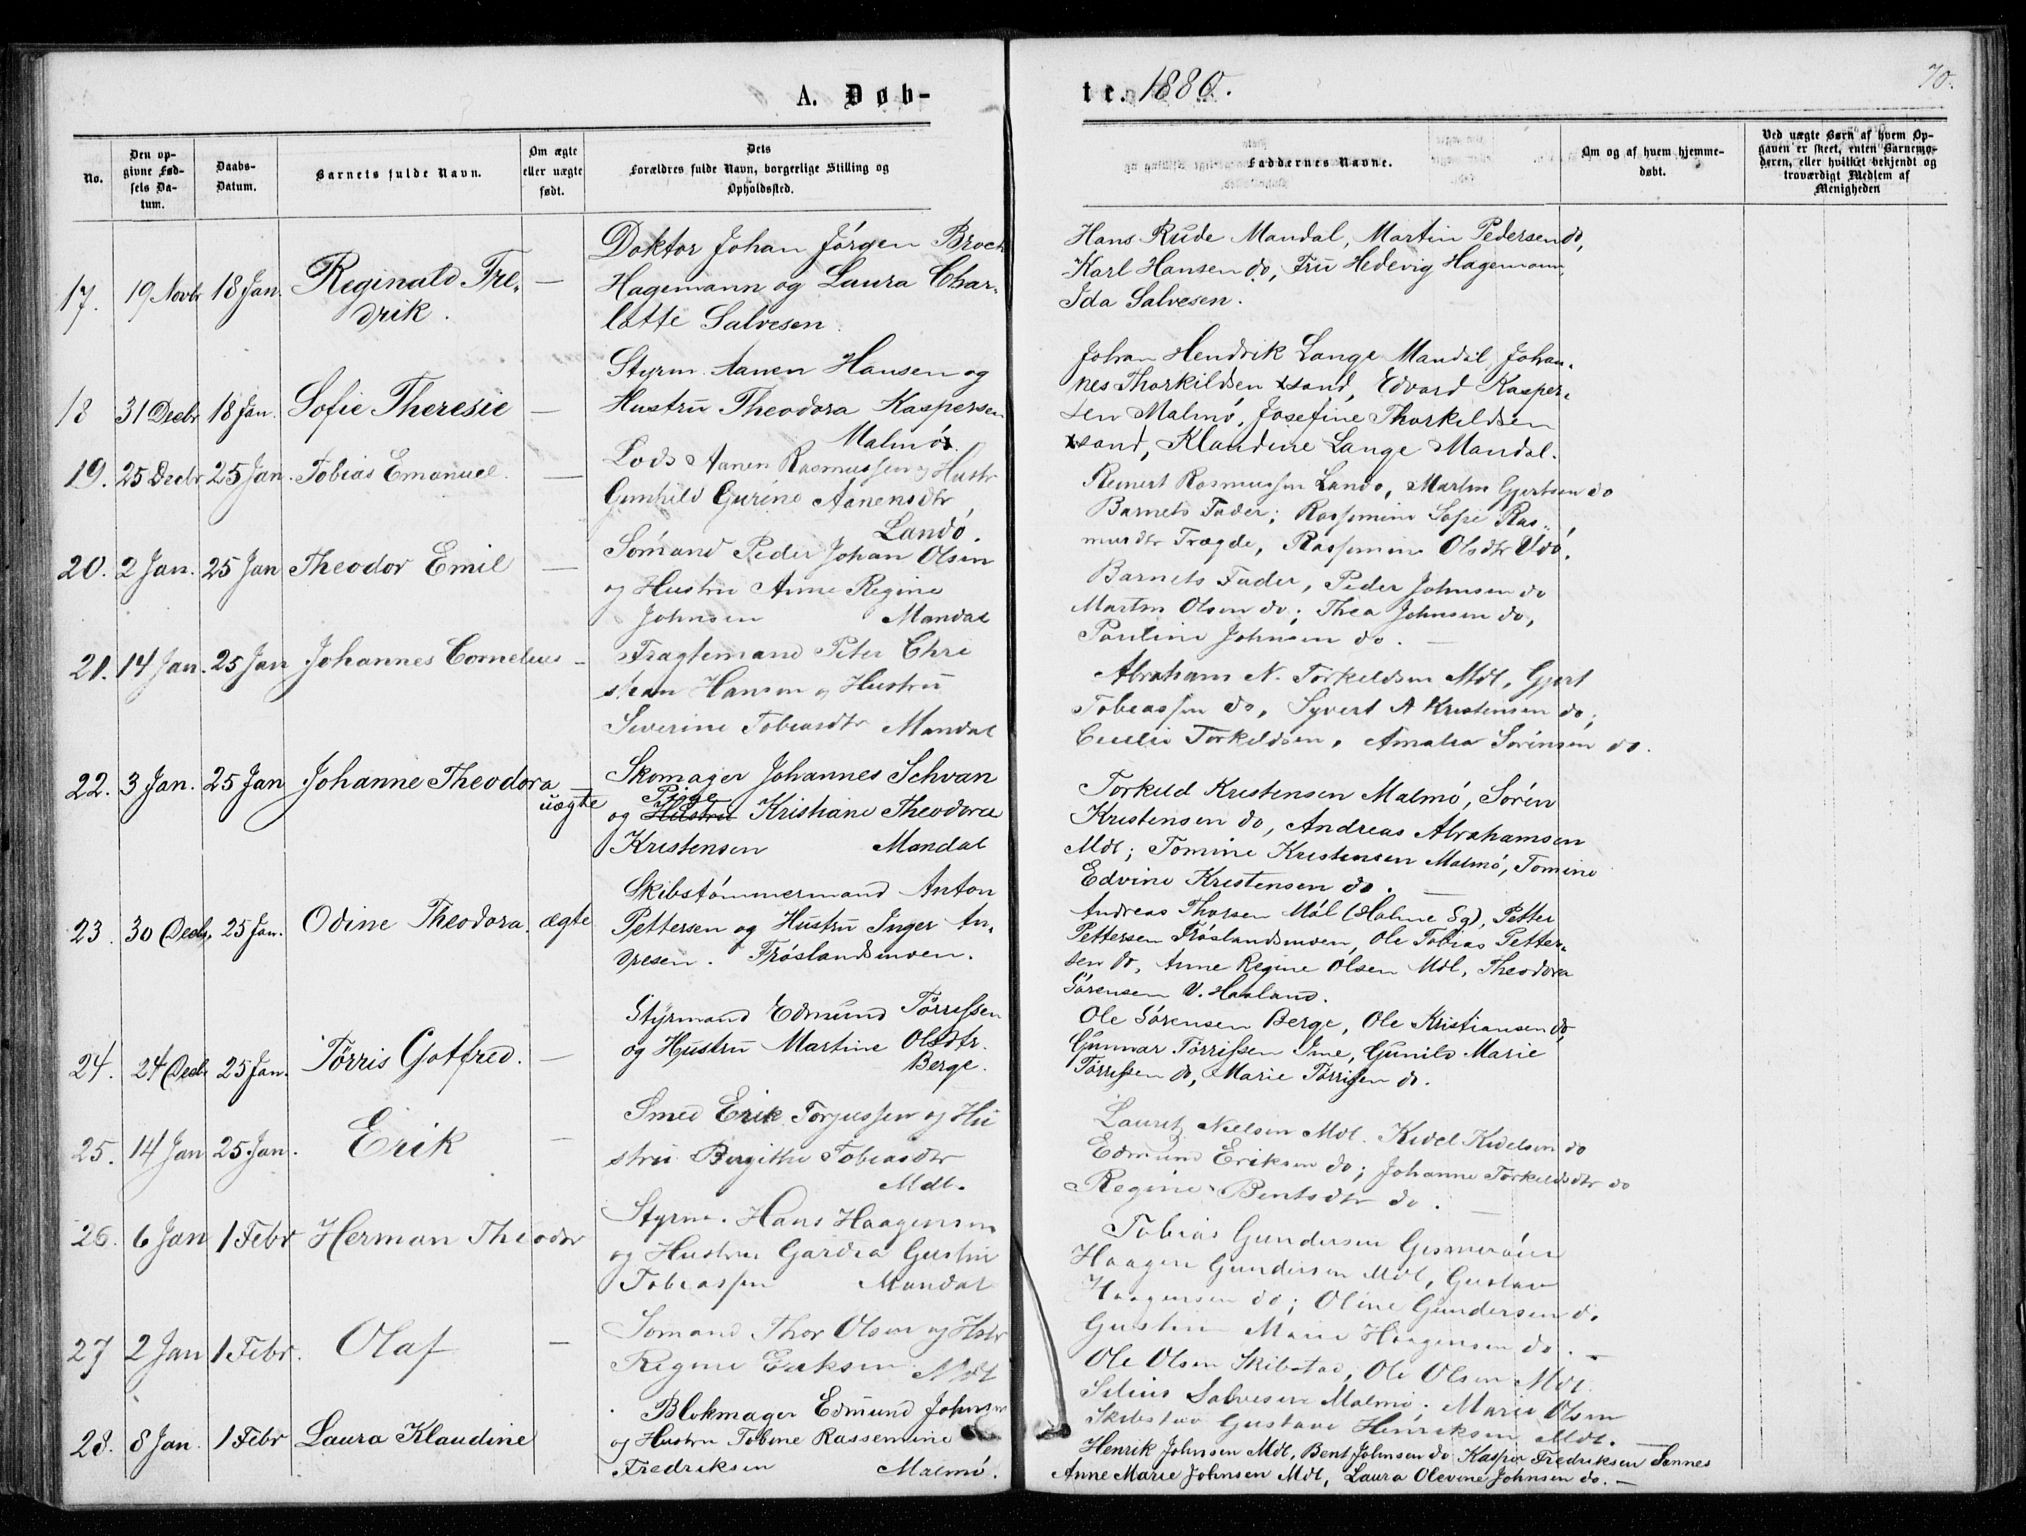 A. Døb-
te. 1880.
70.
No.
Den op-
givne Fød-
sels Da-
tum.
Daabs-
Datum.
Barnets fulde Navn.
Om ægte
eller uægte
født.
Dets
Forældres fulde Navn, borgerlige Stilling og
Opholdssted.
Faddernes Navne.
Om og af hvem hjemme-
døbt.
Ved uægte Børn af hvem Op-
gaven er skeet, enten Barnemo-
deren, eller hvilket bekjendt og
troværdigt Medlem af
Menigheden
17. 19 Novbr 18 Jan. Reginald Fre-
drik. —
Doktor Johan Jørgen Broch
Hagemann og Laura Char-
lotte Salvesen.
Hans Rude Mandal, Martin Pedersen do,
Karl Hansen do, Fru Hedevig Hagemann
Ida Salvesen.
18 31 Decbr 18 Jan. Sofie Theresie —
Styrm. Aanen Hansen og
Hustru Theodora Kaspersen
Malmø.
Johan Hendrik Lange Mandal, Johan-
nes Thorkildsen Xsand, Edvard Kasper-
sen Malmø, Josefine Thorkildsen
Xsand, Klaudine Lange Mandal.
19. 25 Decbr 25 Jan. Tobias Emanuel —
Lods Aanen Rasmussen og Hustr
Gunhild Gurine Aanensdtr
Landø.
Reinert Rasmussen Landø, Martin Gjertsen do
Barnets Fader; Rassmine Sofie Ras-
musdtr Trægde, Rassmine Olsdtr Udø.
20. 2 Jan. 25 Jan Theodor Emil —
Sømand Peder Johan Olsen
og Hustru Anne Regine
Johnsen Mandal
Barnets Fader, Peder Johnsen do
Martin Olsen do; Thea Johnsen do,
Pauline Johnsen do. —
21. 14 Jan. 25 Jan Johannes Cornelius —
Fragtemand Peter Chri
stian Hansen og Hustru
Severine Tobiasdtr Mandal
Abraham N. Torkildsen Mdl, Gjert
Tobiassen do, Syvert A Kristensen do;
Cecilie Torkildsen, Amalia Sørensen do.
22. 3 Jan. 25 Jan Johanne Theodora —
uægte
Skomager Johannes Schvan
Pige
og Hustru Kristiane Theodora
Kristensen Mandal
Torkild Kristensen Malmø, Søren
Kristensen do, Andreas Abrahamsen
Mdl; Tomine Kristensen Malmø, Tomine
Edvine Kristensen do. —
23. 30 Decbr. 25 Jan. Odine Theodora. ægte
Skibstømmermand Anton
Pettersen og Hustru Inger An-
dresen. Frøslandsmoen.
Andreas Thorsen Mål (Halme Sg), Petter
Pettersen Frøslandsmoen, Ole Tobias Petter-
sen do, Anne Regine Olsen Mdl, Theodora
Sørensen V. Haaland.
24. 24 Decbr 25 Jan. Tørris Gotfred. —
Styrmand Edmund Tørrissen
og Hustru Martine Olsdtr.
Berge.
Ole Sørensen Berge, Ole Kristiansen do,
Gunnar Tørrissen Ime, Gunild Marie
Tørrissen do, Marie Tørrisen do.
25. 14 Jan 25 Jan. Erik —
Smed Erik Torjussen og Hu
stru Birgithe Tobiasdtr
Mdl.
Lauritz Nielsen Mdl. Kidel Kidelsen do
Edmund Eriksen do; Johanne Torkildsdtr do
Regine Bentsdtr do. —
26. 6 Jan 1 Febr Herman Theodor
Styrm. Hans Haagensen
og Hustru Gardea Gustine
Tobiassen Mandal
Tobias Gundersen
Haagen Gundersen Mdl, Gustav
Haagensen do; Oline Gundersen do.
Gustine Marie Haagensen do. —
27 2 Jan 1 Febr. Olaf —
Sømand Thor Olsen og Hstr
Regine Eriksen Mdl
Ole Olsen Skibstad, Ole Olsen Mdl.
Salvesen Malmø; Marie Olsen
Skibstad Gustava Henriksen Mdl. —
28. 8 Jan. 1 Febr Laura Klaudine
Blokmager Edmund Johnsen
og Hustru Tobine Rassemine
Fredriksen Malmø.
Henrik Johnsen Mdl, Bent Johnsen do Kasper Fredriksen Sennes
Anne Marie Johnsen Mdl, Laura Olevine Johnsen do. —